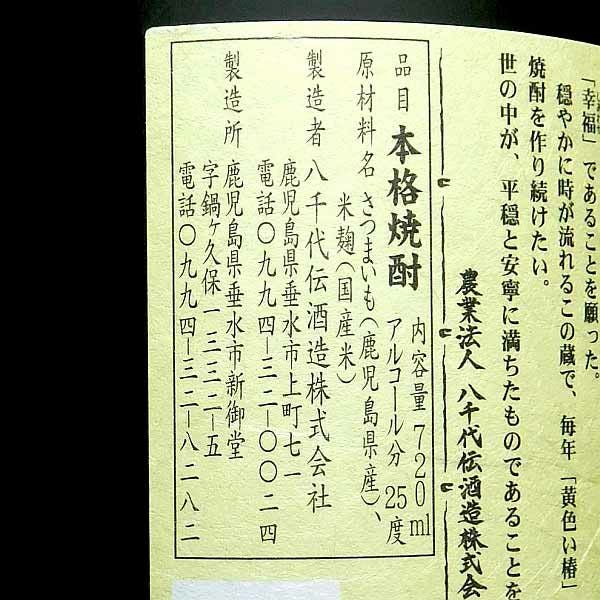 「幸福」であることを願った。
穏やかに時が流れるこの蔵で、毎年「黄色い椿」
焼酎を作り続けたい。
世の中が、平穏と安寧に満ちたものであることを
農業法人 八千代伝酒造株式会
品目 本格焼酎 内容量 720ml
アルコール分 25度
原材料名 さつまいも(鹿児島県産)、
米麹(国産米)
製造者 八千代伝酒造株式会社
鹿児島県垂水市上町七一
電話〇九九四ー三二ー〇〇二四
製造所 鹿児島県垂水市新御堂
字鍋ヶ久保一三三二ー五
電話〇九九四ー三二ー八二八二